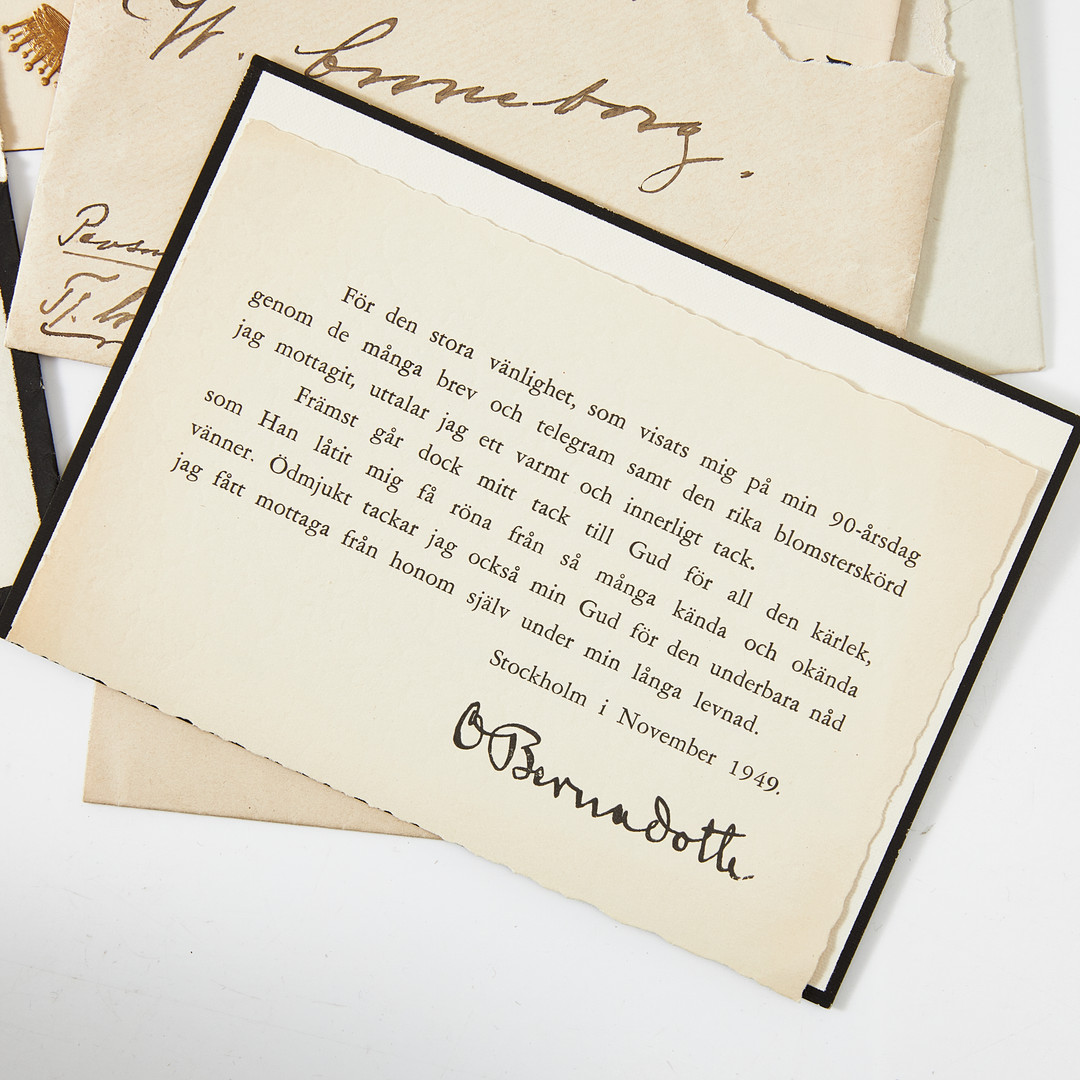 W. Croneborg.
För den stora vänlighet, som visats mig på min 90-årsdag
genom de många brev och telegram samt den rika blomsterskörd
jag mottagit, uttalar jag ett varmt och innerligt tack.
Främst går dock mitt tack till Gud för all den kärlek,
som Han låtit mig få röna från så många kända och okända
vänner. Ödmjukt tackar jag också min Gud för den underbara nåd
jag fått mottaga från honom själv under min långa levnad.
Stockholm i November 1949.
O Bernadotte